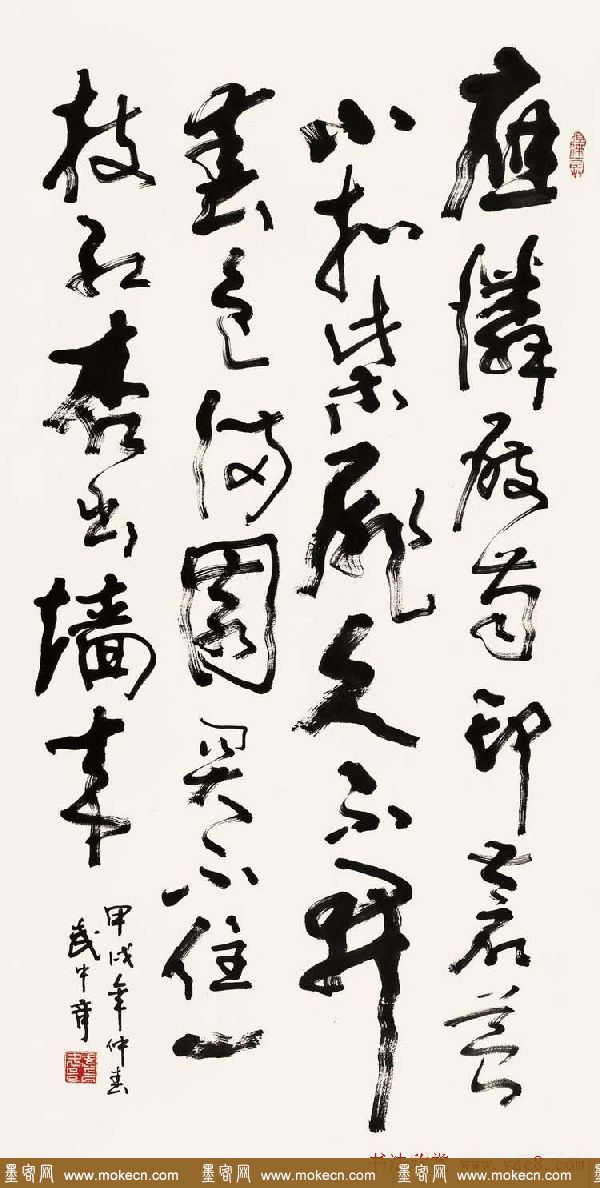 應憐屐齒印蒼苔
小扣柴扉久不開
春色滿園關不住一
枝紅杏出墙来
甲戌年仲春
武中奇
www.yac8.com
墨客网 www.mokecn.com 墨客网 www.mokecn.com 墨客网 www.mokecn.com 墨客网 www.